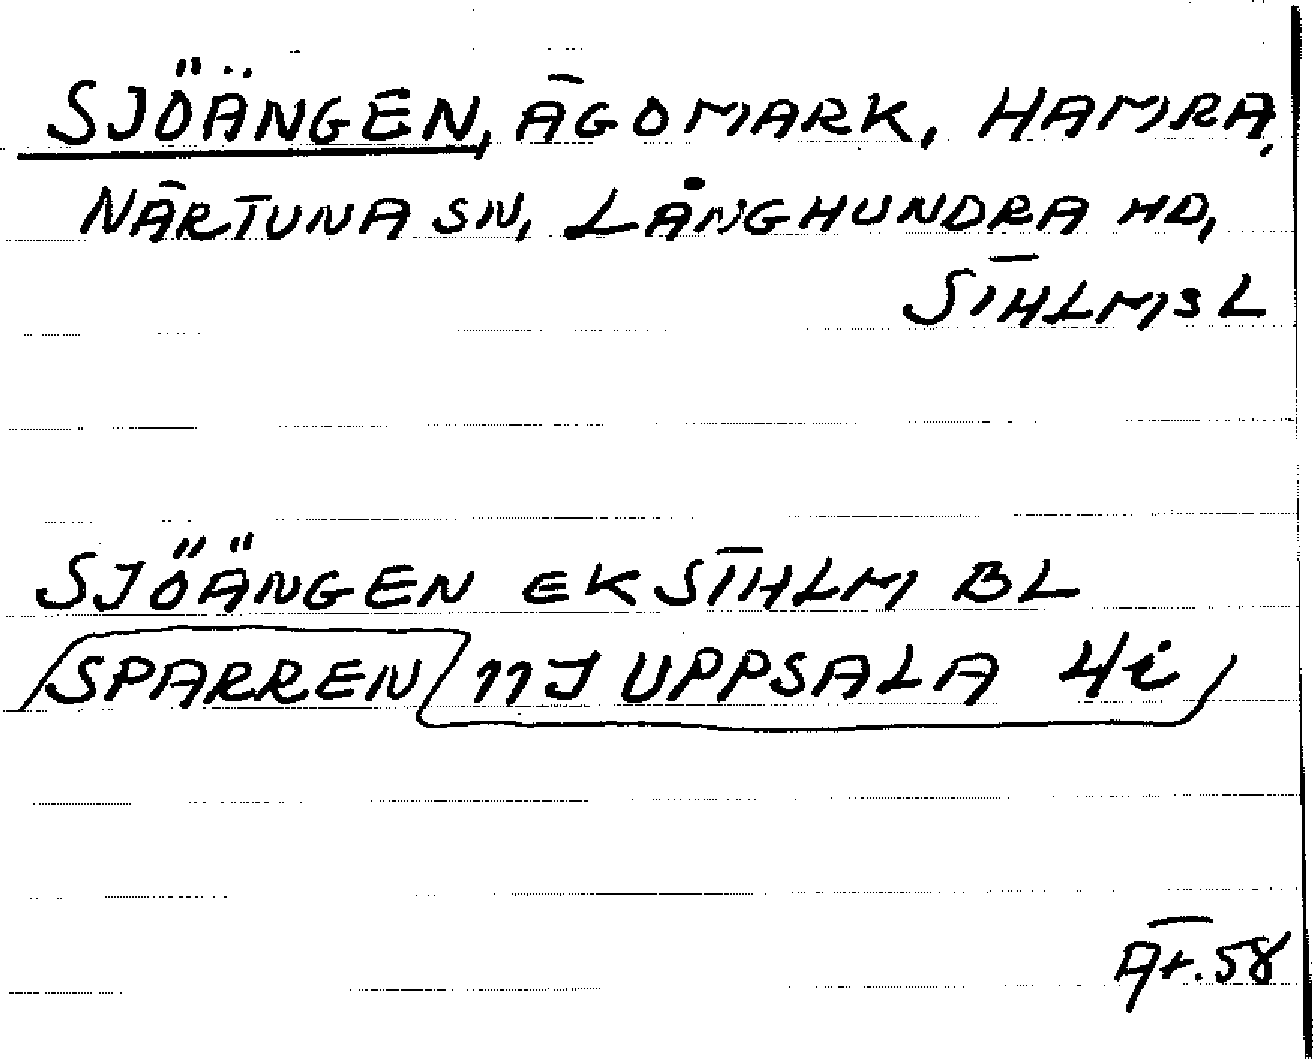 SJÖÄNGEN, ÄGOMARK, HAMRA,
NÄRTUNA SN, LÅNGHUNDRA HD,
STHLMS L
SJÖÄNGEN EK STHLM BL
SPARREN 11J UPPSALA 4i
Är. 58